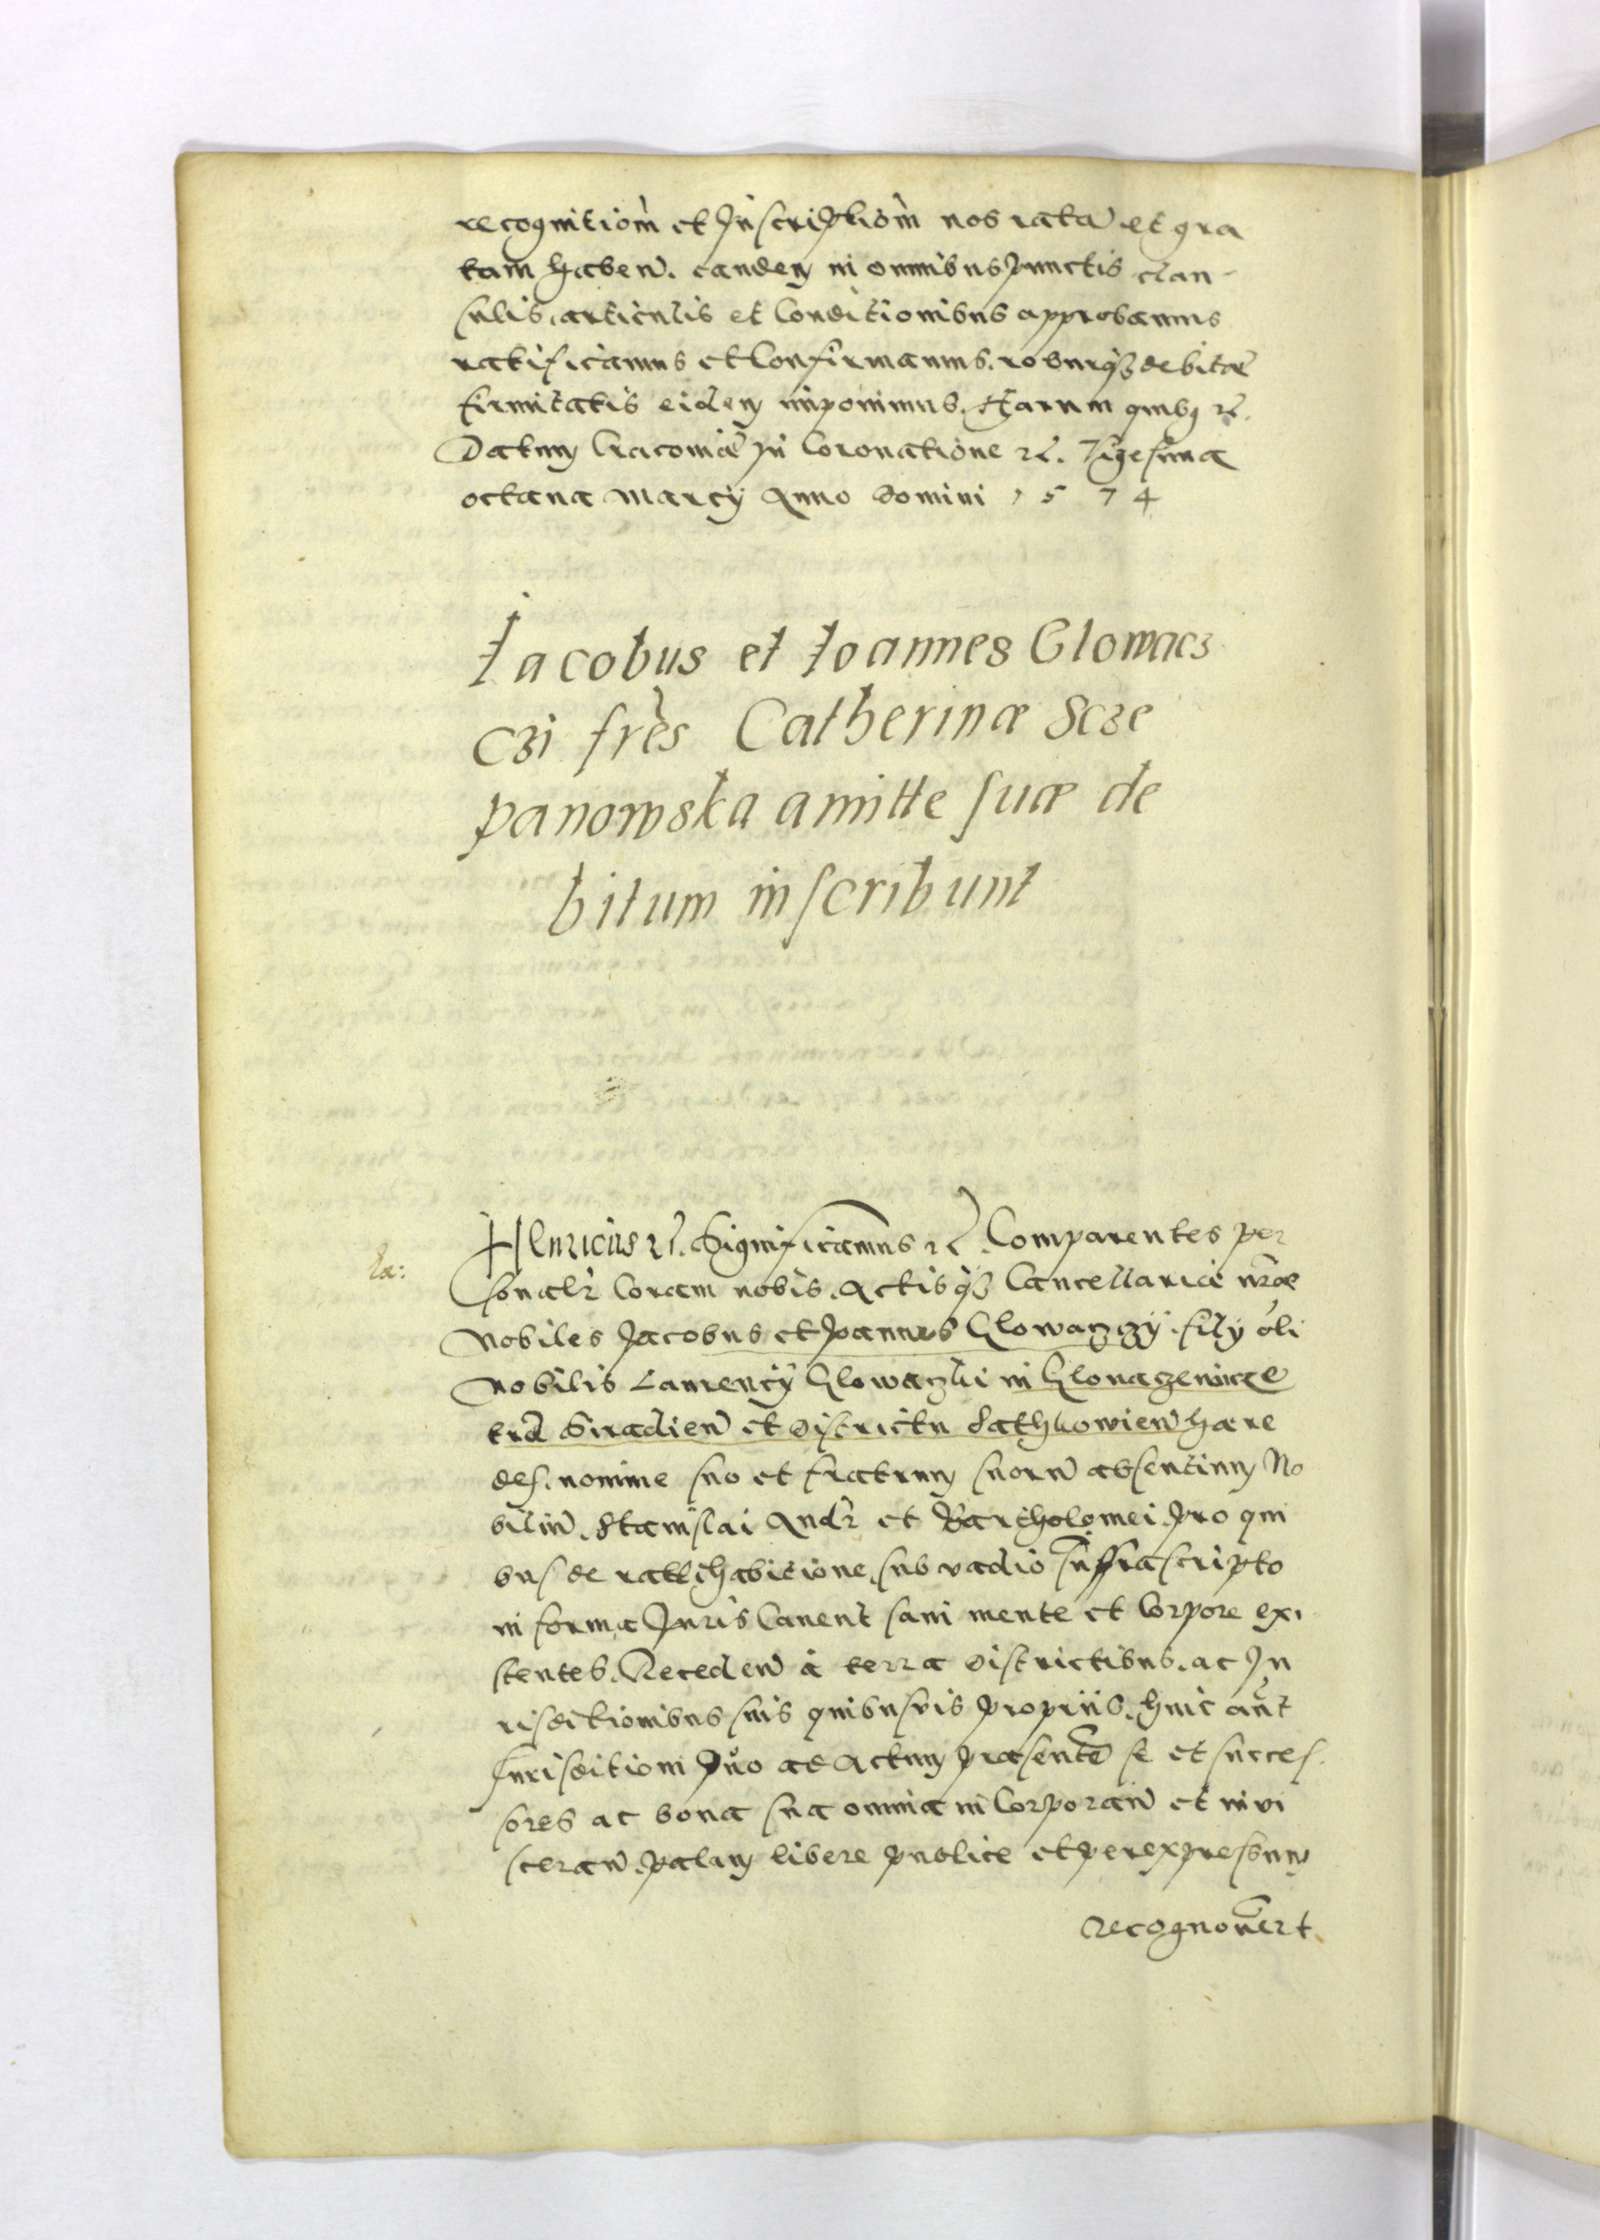 recognitiom̃ et Inscriptiom̃ nos ratã et gra
tam habeñ. eandem in omnibus punctis clau-
sulis, articulis et Conditionibus approbamus
ratificamus et Confirmamus. roburq3 debitæ
firmitatis eidem imponimus. Harum quibq rẽ.
Datum Cracoviæ in Coronatione rẽ. Vigesima
octava Marcÿ Anno Domini 1574
Iacobus et Ioannes Glowacz
czi frẽs Catherinæ Scze
panowska amitte suæ de
bitum inscribunt
Henricus rẽ. Significamus rẽ. Comparentes per
sonalr̃ Coram nobis. Actisq3 Cancellariæ nr̃æ
Nobiles Jacobus et Joannes Glowaczczÿ. filÿ oli
Nobilis Laurencÿ Glowaczki in
trã Siradieñ et Districtu hære
des. nomine suo et fratrum suorũ absentium No
biliũ. Stanislai Andr̃ et Bartholomei. pro qui
bus de rattihabitione. sub vadio Infrascripto
in forma Juris Cavent sani mente et Corpore exi
stentes. Recedeñ à terra Districtibus. ac Ju
risdictionibus suis quibusvis propriis. huic aũt
Jurisditioni quo ad Actum præsentẽ se et succes
sores ac bona sua omnia in Corporañ et invi
scerañ. palam libere publice et per expressum
recognover̃t.